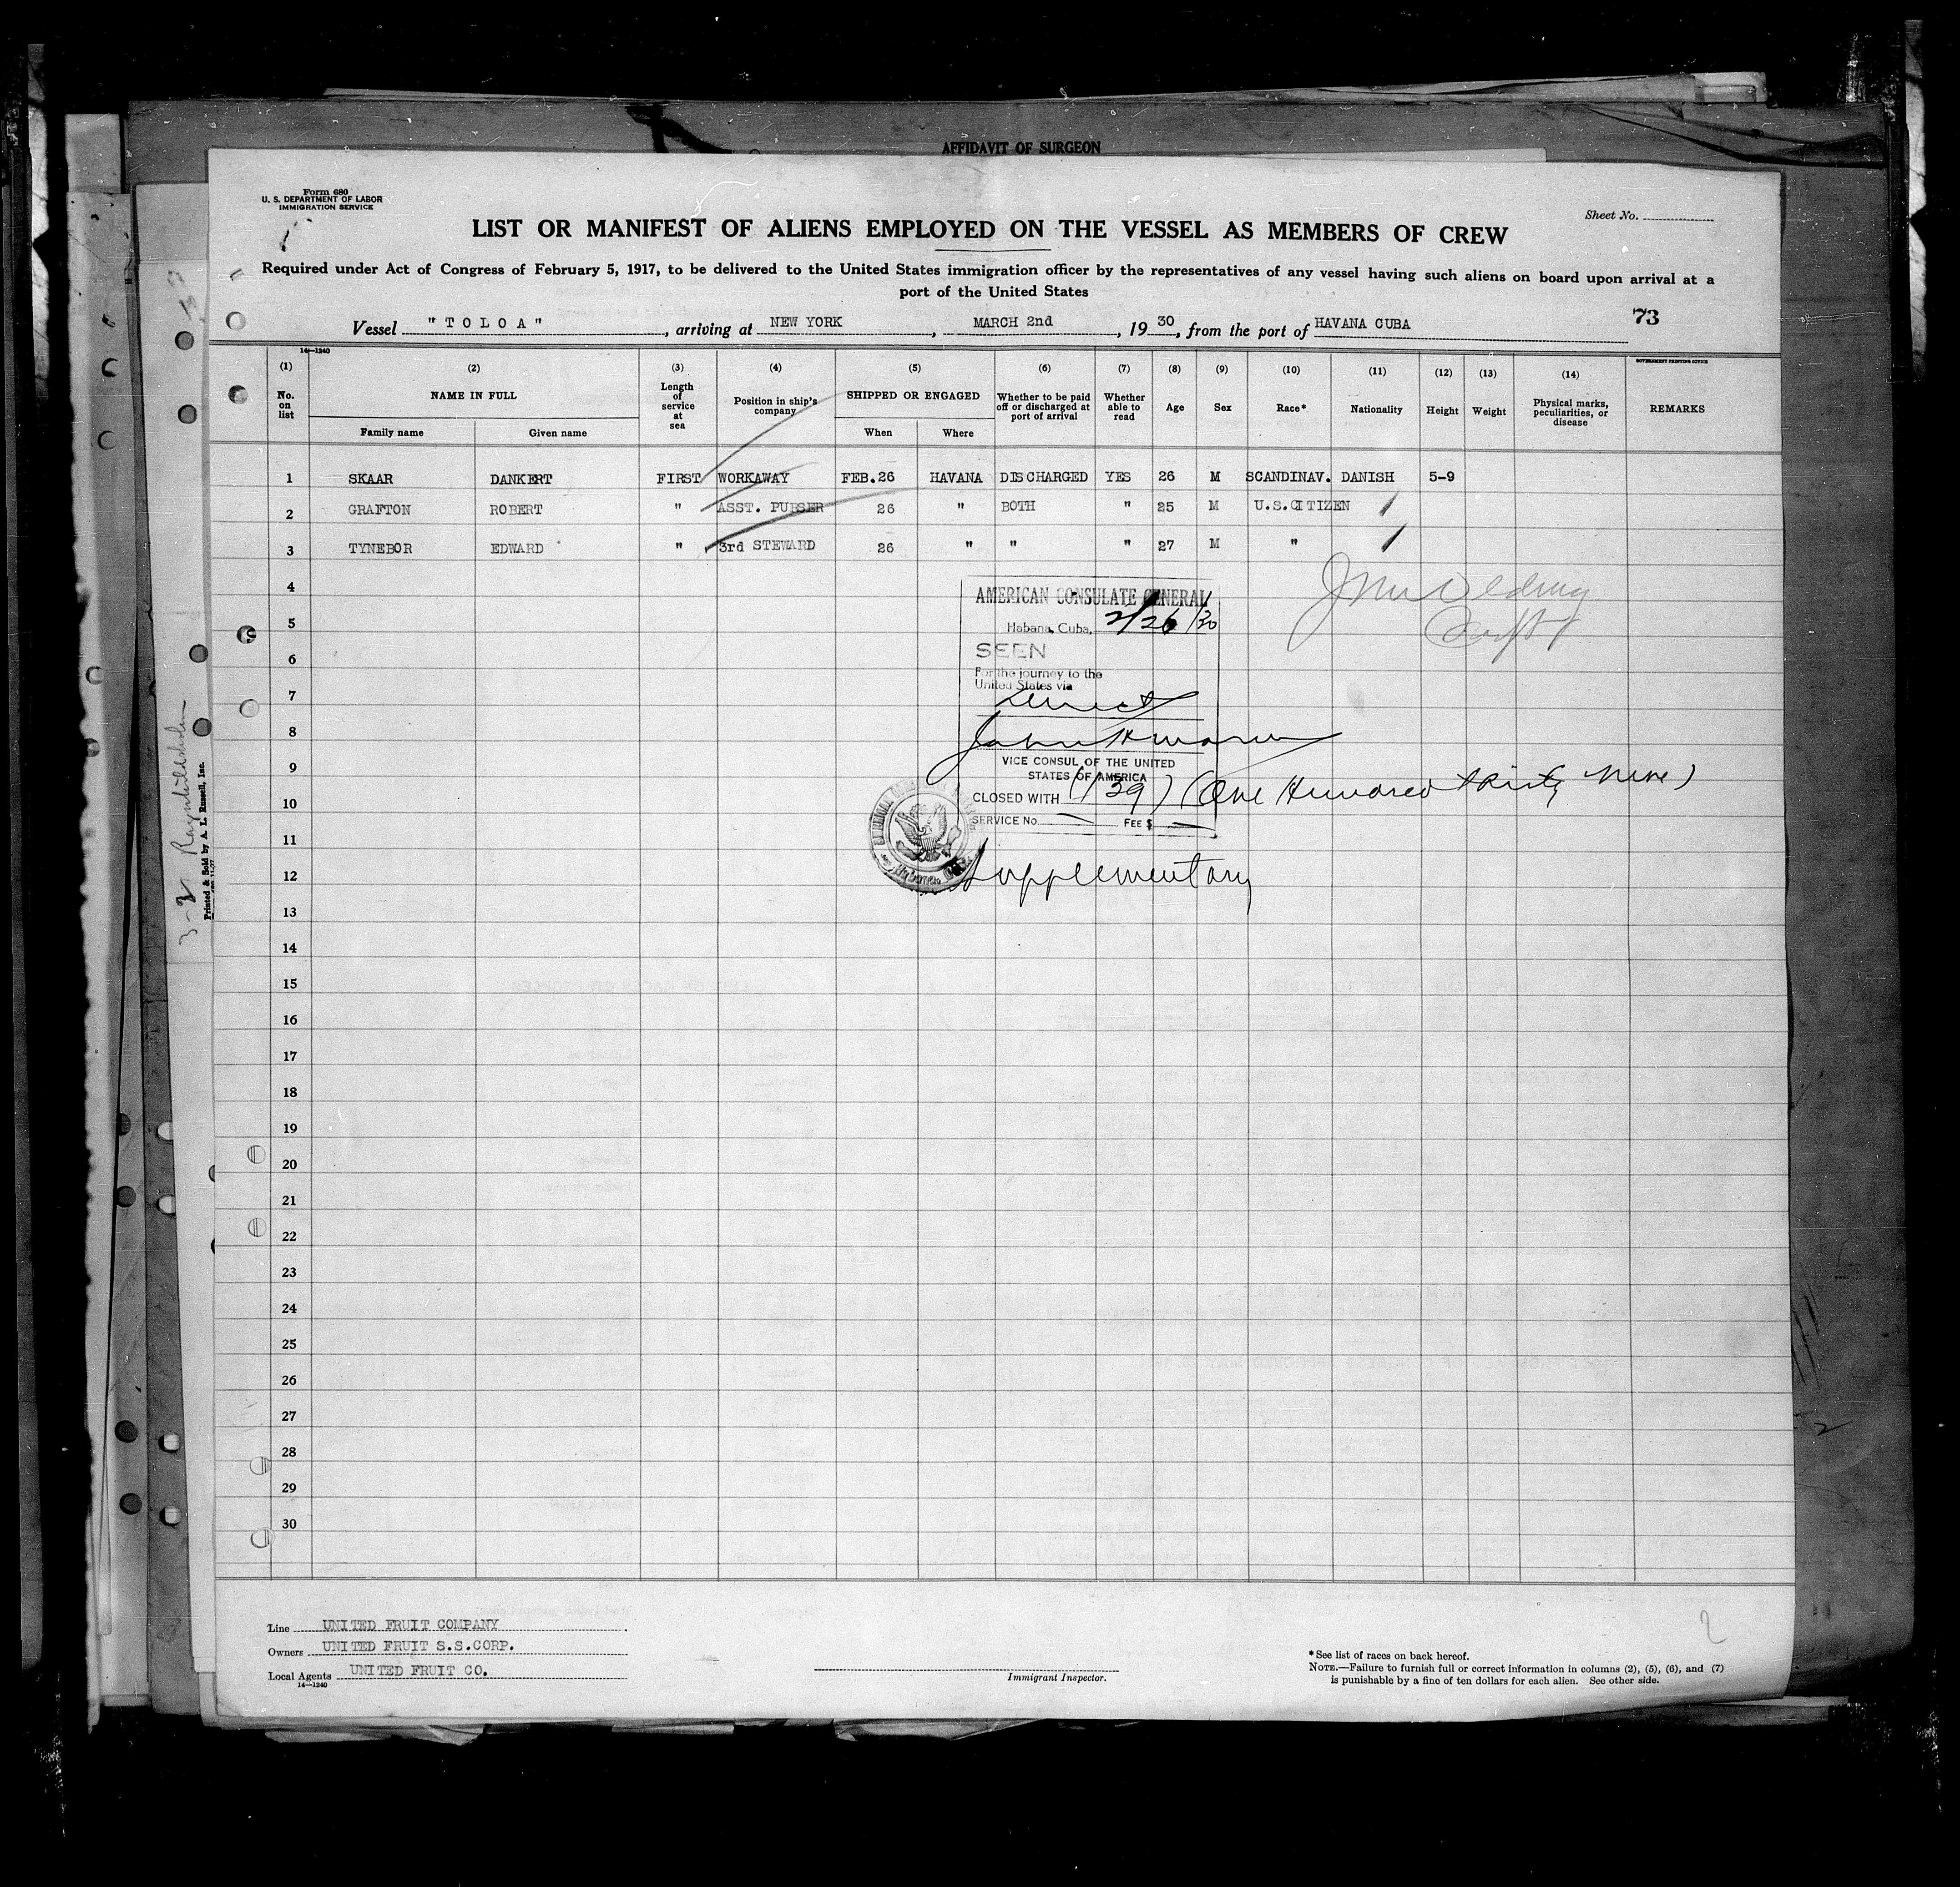 AFFIDAVIT OF SURGEON
Form 680
U. S. DEPARTMENT OF LABOR
IMMIGRATION SERVICE
Sheet No.
LIST OR MANIFEST OF ALIENS EMPLOYED ON THE VESSEL AS MEMBERS OF CREW
Required under Act of Congress of February 5, 1917, to be delivered to the United States immigration officer by the representatives of any vessel having such aliens on board upon arrival at a
port of the United States
Vessel "TOLOA", arriving at NEW YORK, MARCH 2nd, 1930, from the port of HAVANA CUBA 73
14—1240
GOVERNMENT PRINTING OFFICE
(1) No. on list (2) NAME IN FULL Family name Given name (3) Length of service at sea (4) Position in ship's company (5) SHIPPED OR ENGAGED When Where (6) Whether to be paid off or discharged at port of arrival (7) Whether able to read (8) Age (9) Sex (10) Race* (11) Nationality (12) Height (13) Weight (14) Physical marks, peculiarities, or disease REMARKS
1 SKAAR DANKERT FIRST WORKAWAY FEB.26 HAVANA DISCHARGED YES 26 M SCANDINAV. DANISH 5-9
2 GRAFTON ROBERT " ASST. PURSER 26 " BOTH " 25 M U.S.CITIZEN
3 TYNEBOR EDWARD " 3rd STEWARD 26 " " " 27 M "
4
AMERICAN CONSULATE GENERAL
5
Habana, Cuba, 2/26/30
SEEN
6
For the journey to the
United States via
7
Direct
8
9
VICE CONSUL OF THE UNITED
STATES OF AMERICA
10
CLOSED WITH (139) (One Hundred thirty nine)
SERVICE No. FEE $
11
12
Supplementary
13
14
15
16
17
18
19
20
21
22
23
24
25
26
27
28
29
30
Line UNITED FRUIT COMPANY
Owners UNITED FRUIT S.S.CORP.
Local Agents UNITED FRUIT CO.
14—1240
Immigrant Inspector.
*See list of races on back hereof.
NOTE.—Failure to furnish full or correct information in columns (2), (5), (6), and (7)
is punishable by a fine of ten dollars for each alien. See other side.
2
Printed & Sold by A. L. Russell, Inc.